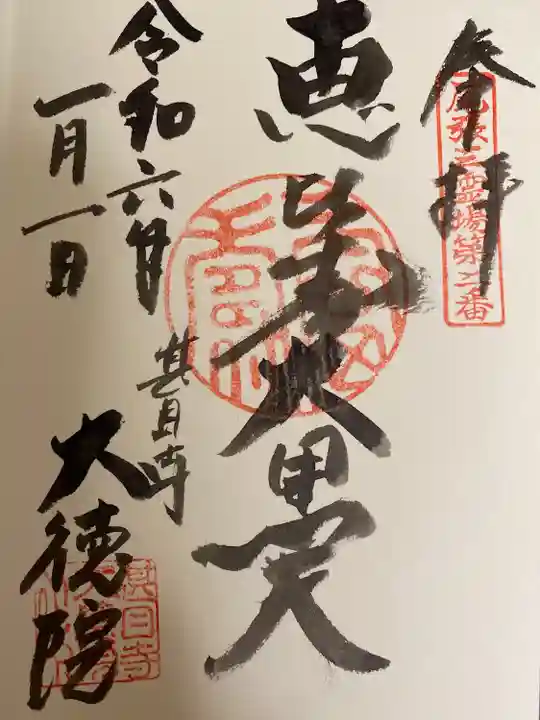 奉拝
尾張三霊場第二番
恵比寿大黒天
令和六年
一月一日
甚目寺
大徳院